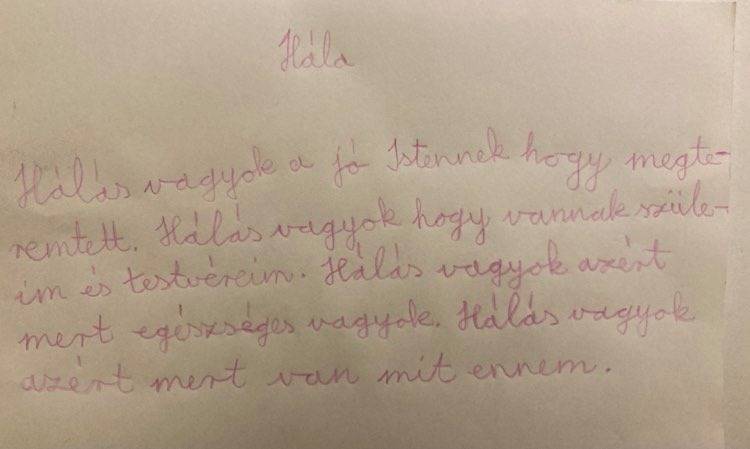 Hála
Hálás vagyok a jó Istennek hogy megte-
remtett. Hálás vagyok hogy vannak szüle-
im és testvéreim. Hálás vagyok azért
mert egészséges vagyok. Hálás vagyok
azért mert van mit ennem.